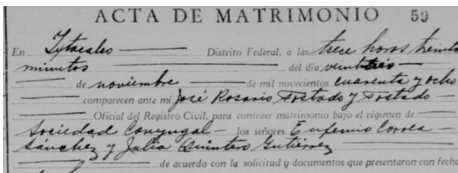 ACTA DE MATRIMONIO 59
En Iztacalco Distrito Federal, a las trece horas treinta
minutos del día veintitrés
de noviembre de mil novecientos cuarenta y ocho
comparecen ante mi José Rosario Tostado y Tostado
Oficial del Registro Civil, para contraer matrimonio bajo el régimen de
Sociedad Conyugal los señores Eufemio Correa
Sánchez y Julia Quintero Gutiérrez
de acuerdo con la solicitud y documentos que presentaron con fecha